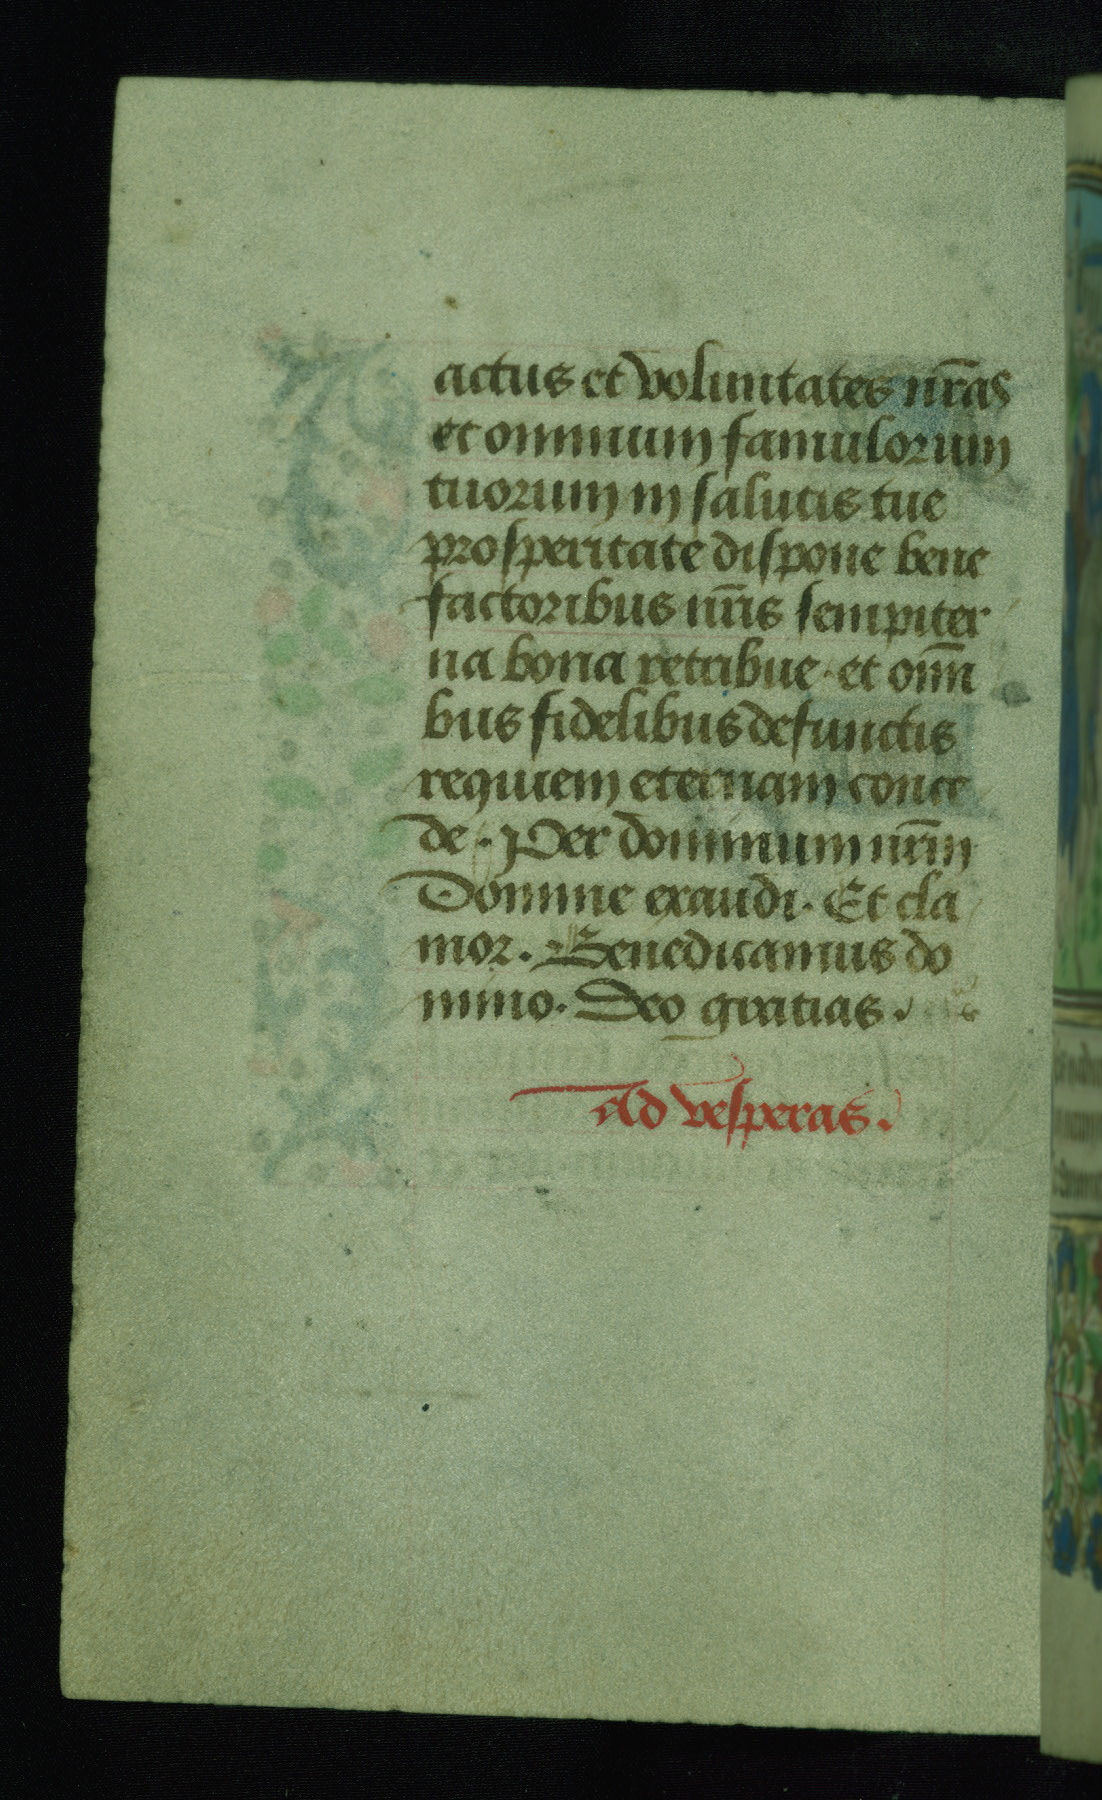 actus et voluntates nr̄as
et omnium famulorum
tuorum in salutis tue
prosperitate dispone bene
factoribus nr̄is sempiter
na bona retribue · et oīm̄
bus fidelibus defunctis
requiem eternam conce
de · Per dominum nr̄m
Domine exaudi · Et cla
mor . Benedicamus do
mino · Deo gratias .
Ad vesperas .